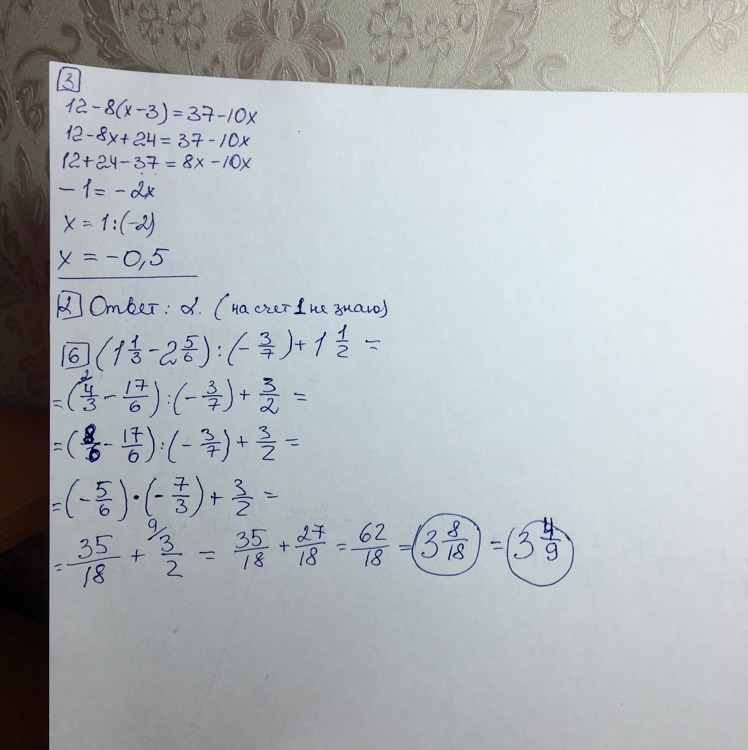 3
12-8(x-3)=37-10x
12-8x+24=37-10x
12+24-37=8x-10x
-1=-2x
x=1:(-2)
x=-0,5
2 Ответ: 2. (на счет 1 не знаю)
6 (1 1/3 - 2 5/6) : (- 3/7) + 1 1/2 =
= (4/3 2 - 17/6) : (- 3/7) + 3/2 =
= (8/6 - 17/6) : (- 3/7) + 3/2 =
= (- 5/6) · (- 7/3) + 3/2 =
= 35/18 + 9/ 3/2 = 35/18 + 27/18 = 62/18 = 3 8/18 = 3 4/9